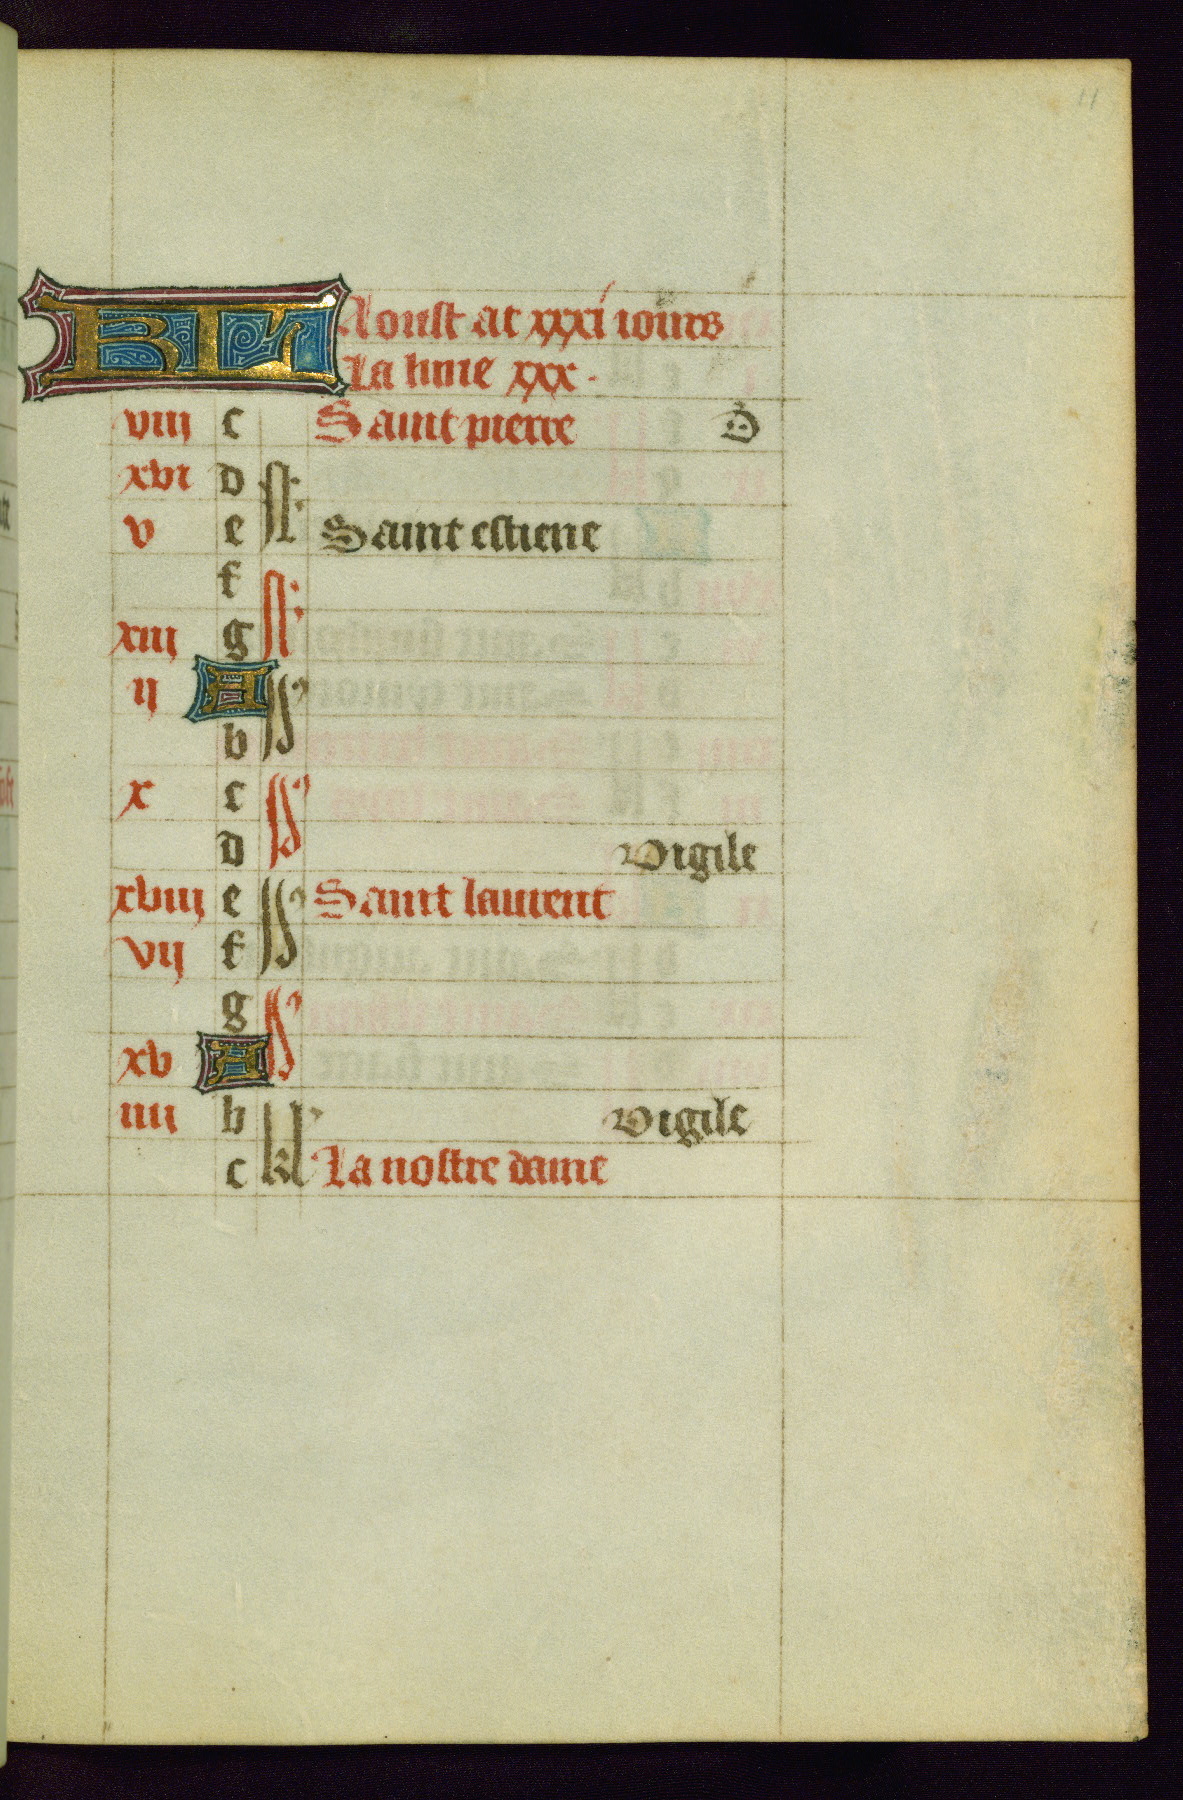 11
KL Aoust at xxxi iours
La lune xxx.
viii c Saint pierre D
xvi d
v e Saint estiene
f
xiii g
ii A
b
x c
d Vigile
xviii e Saint laurent
vii f
g
xv A
iiii b Vigile
c kl La nostre dame